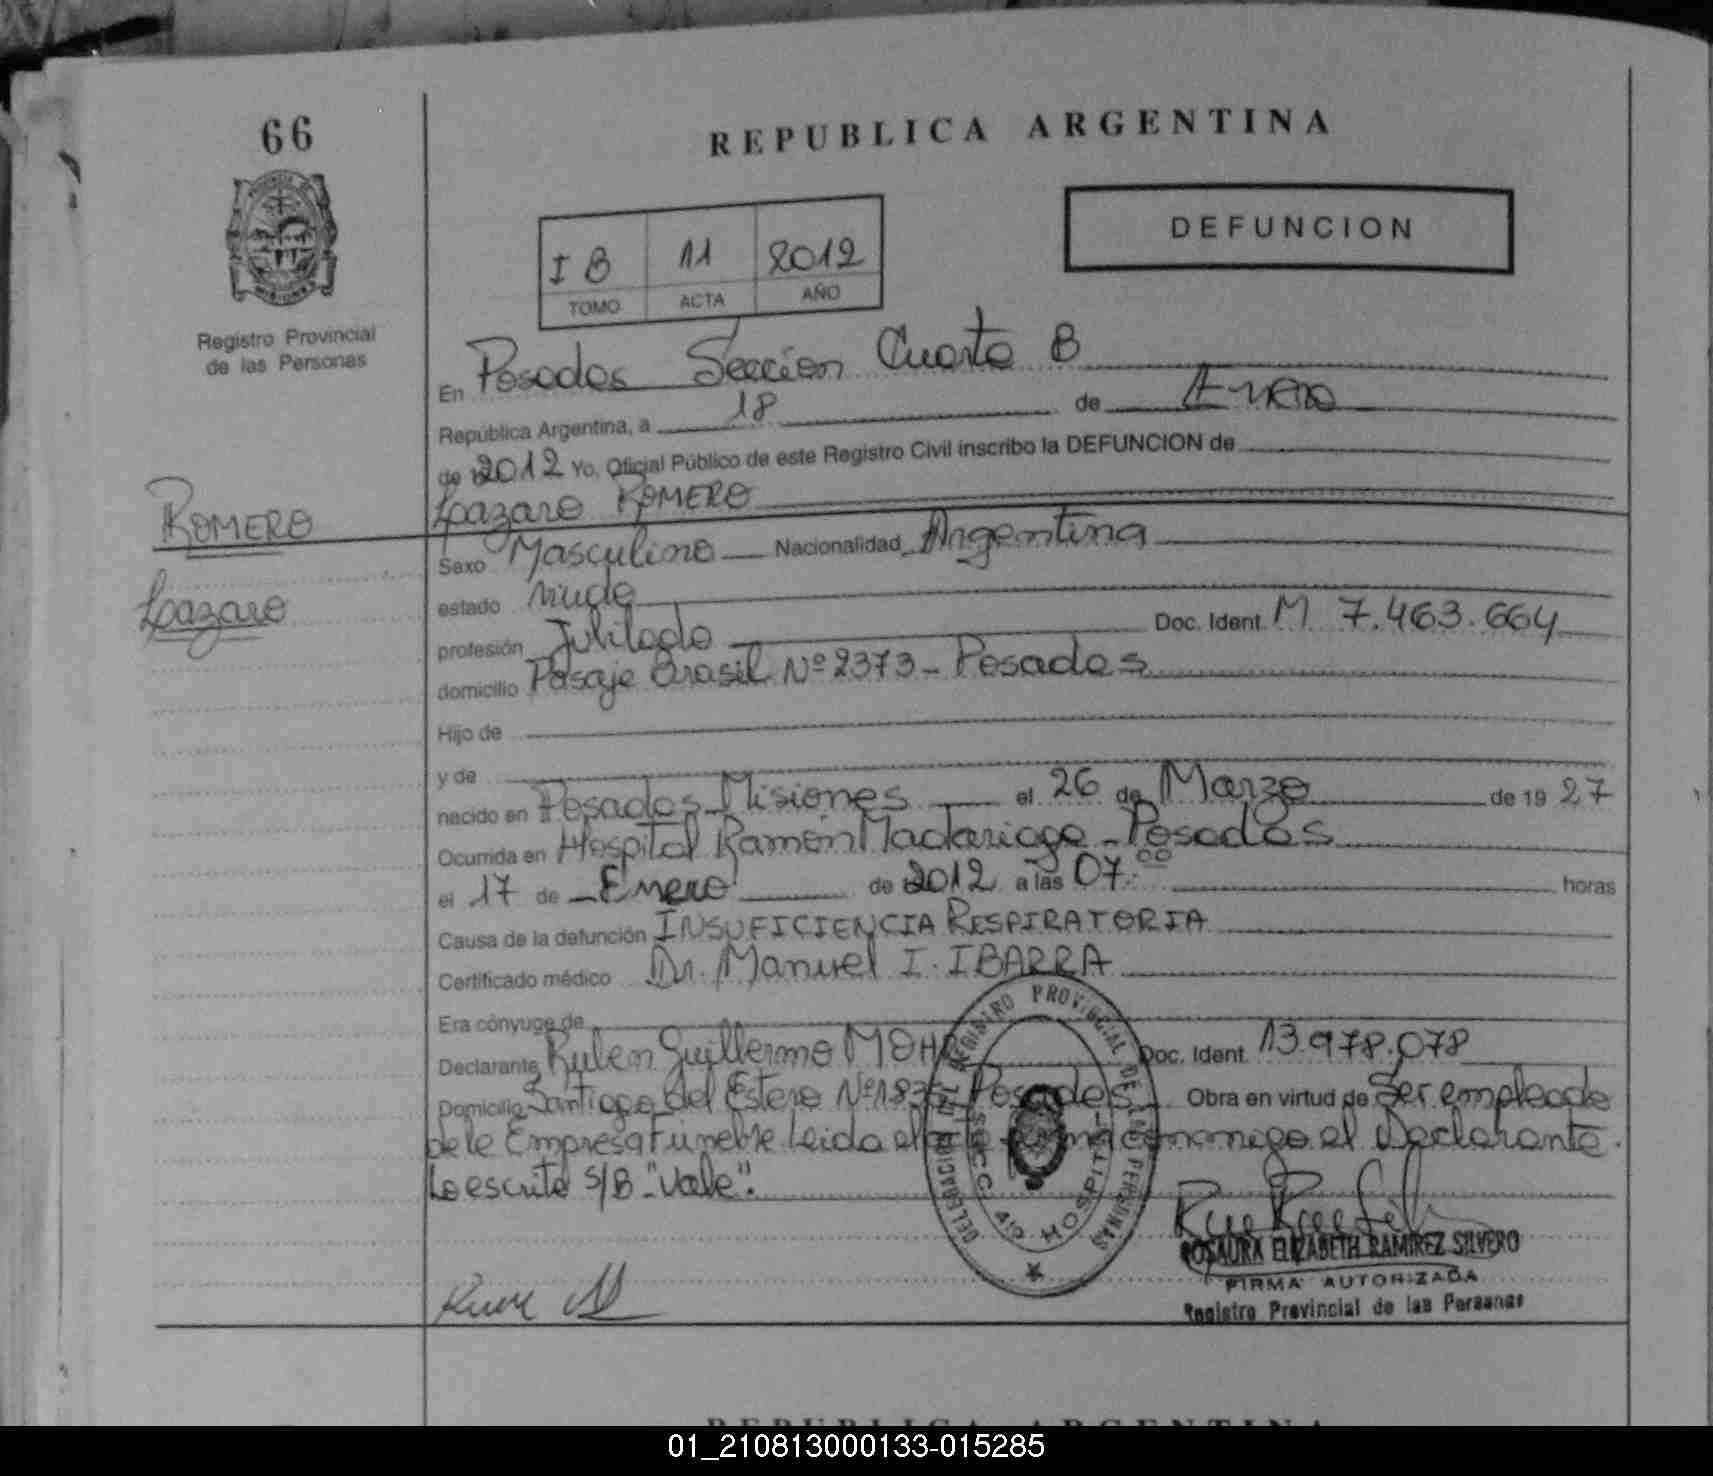 66
REPUBLICA ARGENTINA
DEFUNCION
I B 11 2012
TOMO ACTA AÑO
Registro Provincial
de las Personas
En Posadas Sección Cuarta B
República Argentina, a 18 de Enero
de 2012 Yo, Oficial Público de este Registro Civil inscribo la DEFUNCION de
Lazaro ROMERO
ROMERO
Lazaro
Sexo Masculino Nacionalidad Argentina
estado Viudo
profesión Jubilado Doc. Ident. M 7.463.664
domicilio Pasaje Brasil Nº 2373 - Posadas
Hijo de
y de
nacido en Posadas Misiones el 26 de Marzo de 19 27
Ocurrida en Hospital Ramón Madariaga - Posadas
el 17 de Enero de 2012 a las 07:00 horas
Causa de la defunción INSUFICIENCIA RESPIRATORIA
Certificado médico Dr. Manuel I. IBARRA
Era cónyuge de
Declarante Ruben Guillermo Doc. Ident. 13.978.078
Domicilio Santiago del Estero Posadas Obra en virtud de Ser empleado
de la Empresa Funebre Leida el acta firma conmigo el Declarante.
Lo escrito S/B "Vale".
REGISTRO PROVINCIAL DE LAS PERSONAS
DELEGACION
SECC. 4ta HOSPITAL
ROSAURA ELIZABETH RAMIREZ SILVERO
FIRMA AUTORIZADA
Registro Provincial de las Personas
REPUBLICA ARGENTINA
01_210813000133-015285